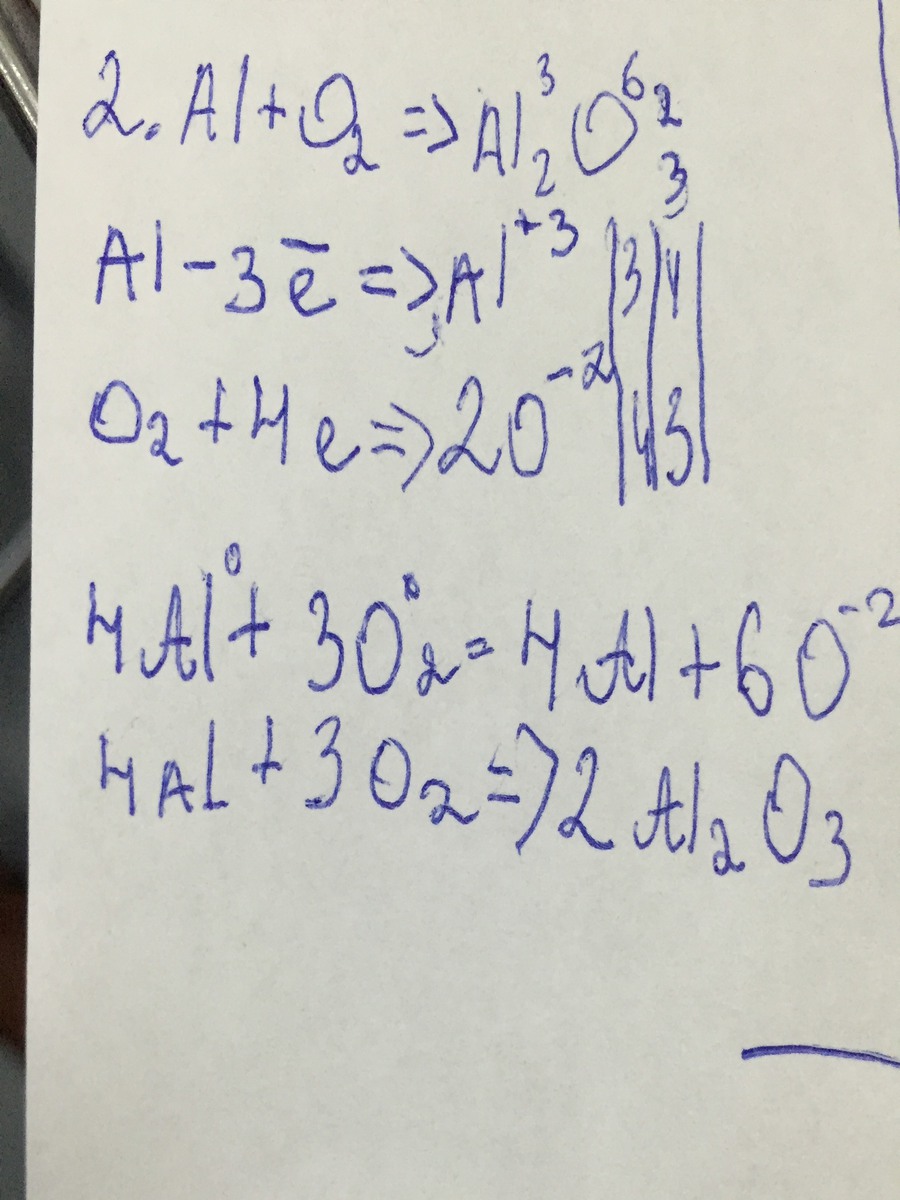 2. Al + O₂ => Al₂³ O⁶ ²₃
Al - 3e̅ => Al⁺³ |3|4|
O₂ + 4e => 2O⁻² |4|3|
4Al⁰ + 3O₂⁰ = 4Al + 6O⁻²
4Al + 3O₂ => 2Al₂O₃